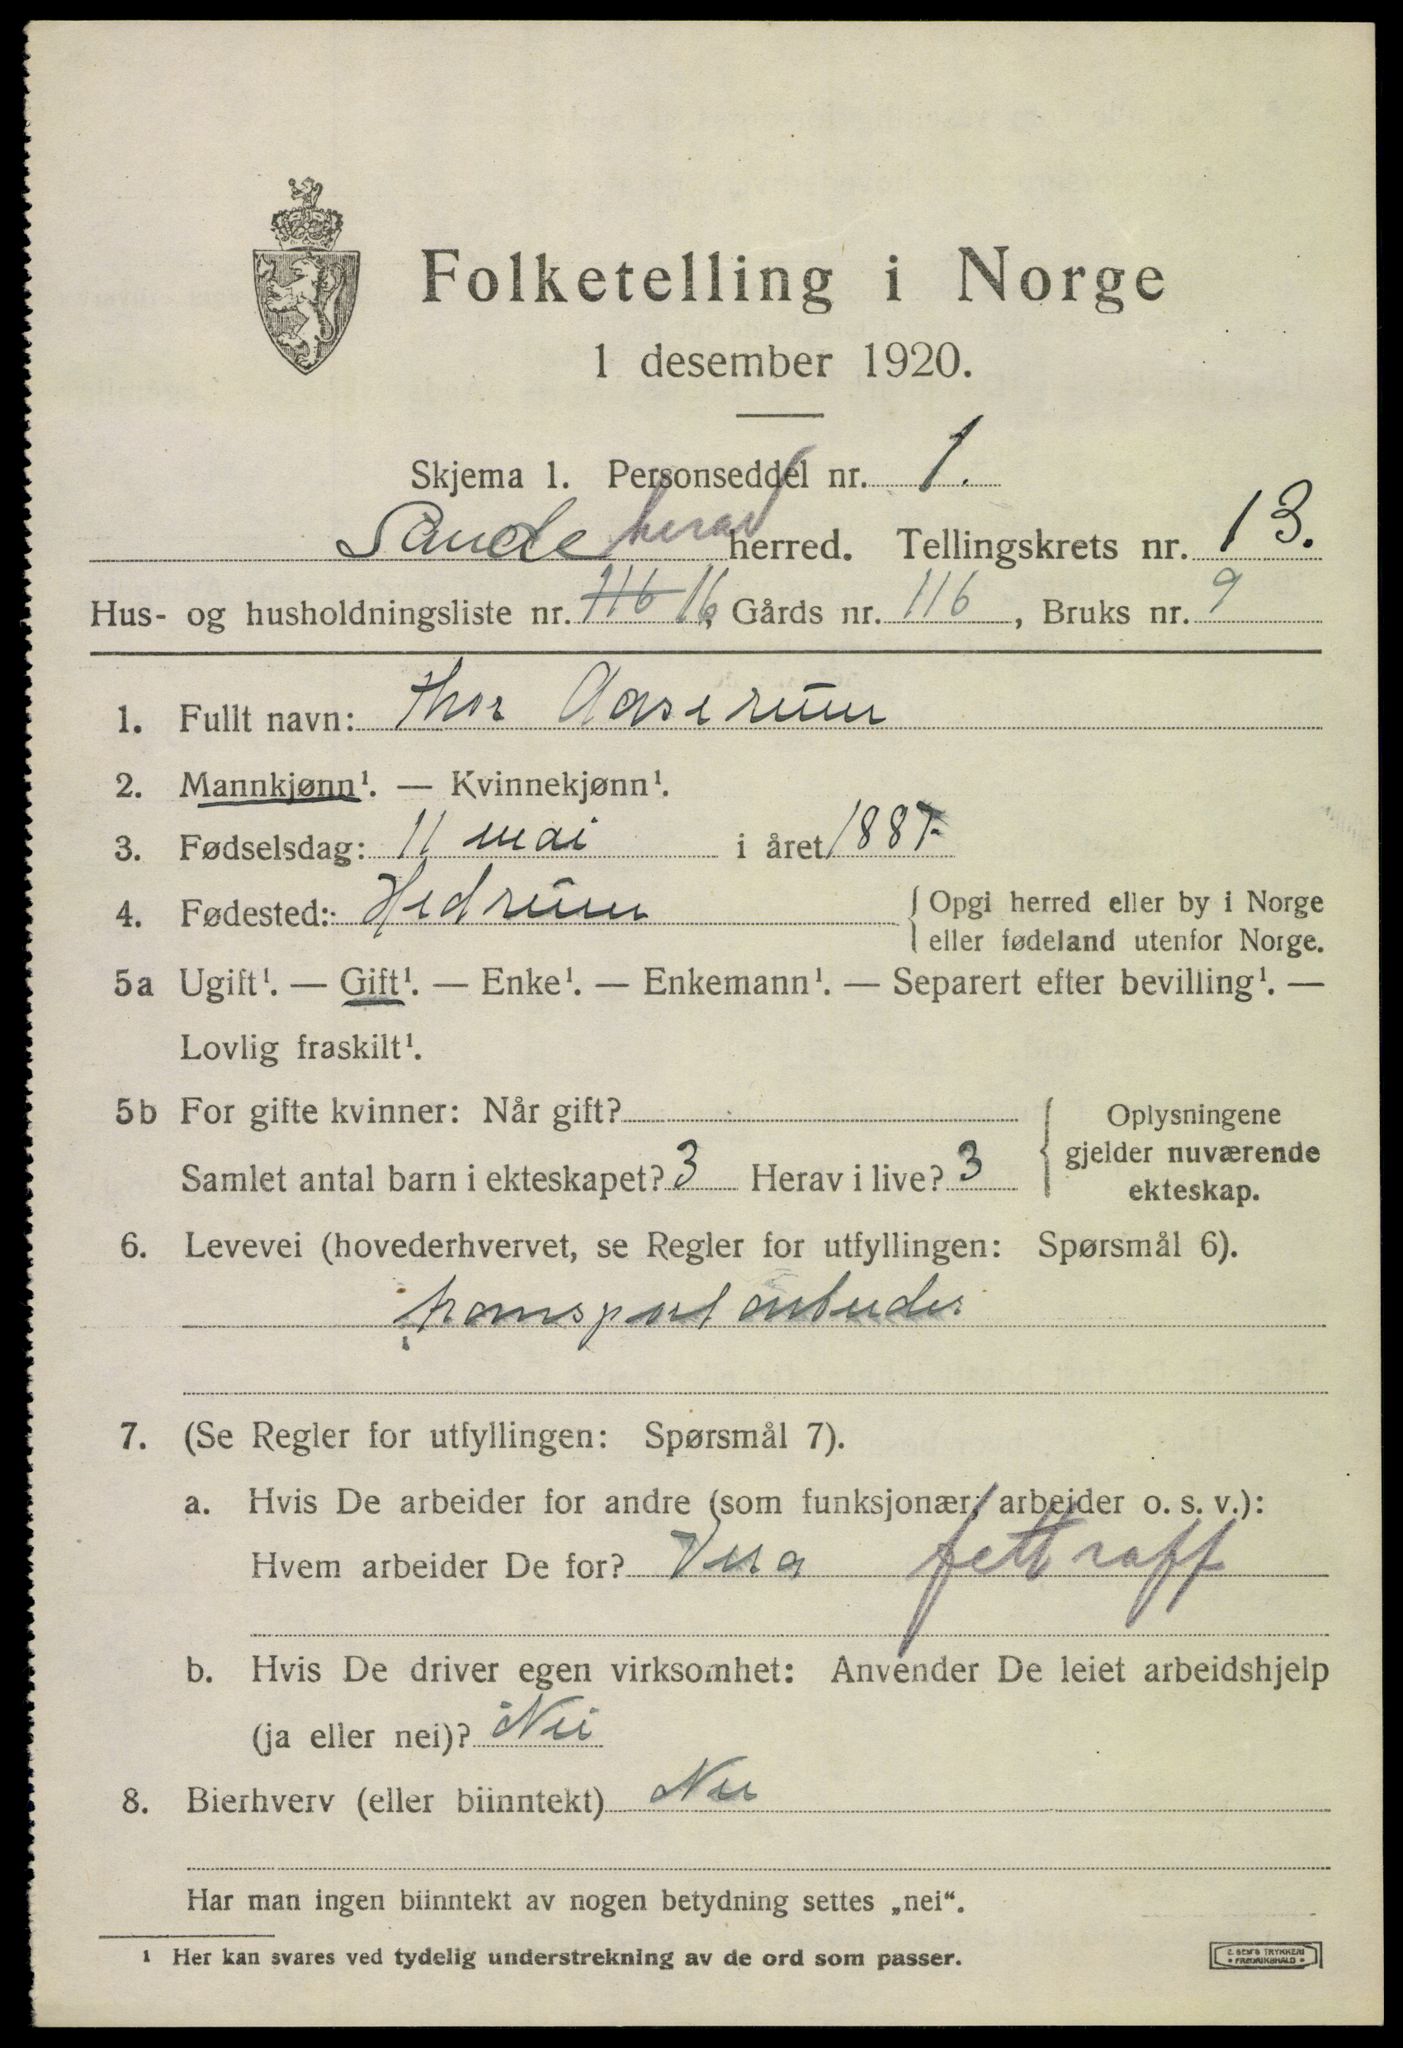 Folketelling i Norge
1 desember 1920.
Skjema 1. Personseddel nr. 1.
Sandeherad herred. Tellingskrets nr. 13.
Hus- og husholdningsliste nr. 116 16, Gårds nr. 116, Bruks nr. 9
1. Fullt navn: Thor Aaserum
2. Mannkjønn¹. — Kvinnekjønn¹.
3. Fødselsdag: 11 mai i året 1887
4. Fødested: Hedrum
{ Opgi herred eller by i Norge
eller fødeland utenfor Norge.
5a Ugift¹. — Gift¹. — Enke¹. — Enkemann¹. — Separert efter bevilling¹. —
Lovlig fraskilt¹.
5b For gifte kvinner: Når gift?
Samlet antal barn i ekteskapet? 3 Herav i live? 3
{ Oplysningene
gjelder nuværende
ekteskap.
6. Levevei (hovederhvervet, se Regler for utfyllingen: Spørsmål 6).
transport arbeider
7. (Se Regler for utfyllingen: Spørsmål 7).
a. Hvis De arbeider for andre (som funksjonær, arbeider o. s. v.):
Hvem arbeider De for? Vera fettraff
b. Hvis De driver egen virksomhet: Anvender De leiet arbeidshjelp
(ja eller nei)? Nei
8. Bierhverv (eller biinntekt) Nei
Har man ingen biinntekt av nogen betydning settes „nei“.
¹ Her kan svares ved tydelig understrekning av de ord som passer.
E. SEM'S TRYKKERI
FREDRIKSHALD